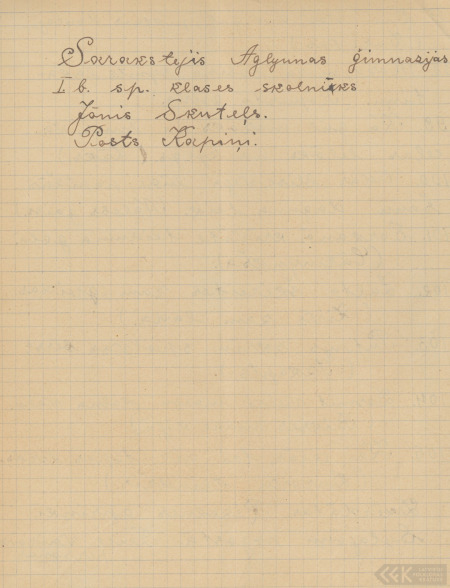 Sarakstejis Aglyunas ģimnazijas
I b. sp. klases skolnīks
Jōnis Skuteļs.
Posts Kapiņi.